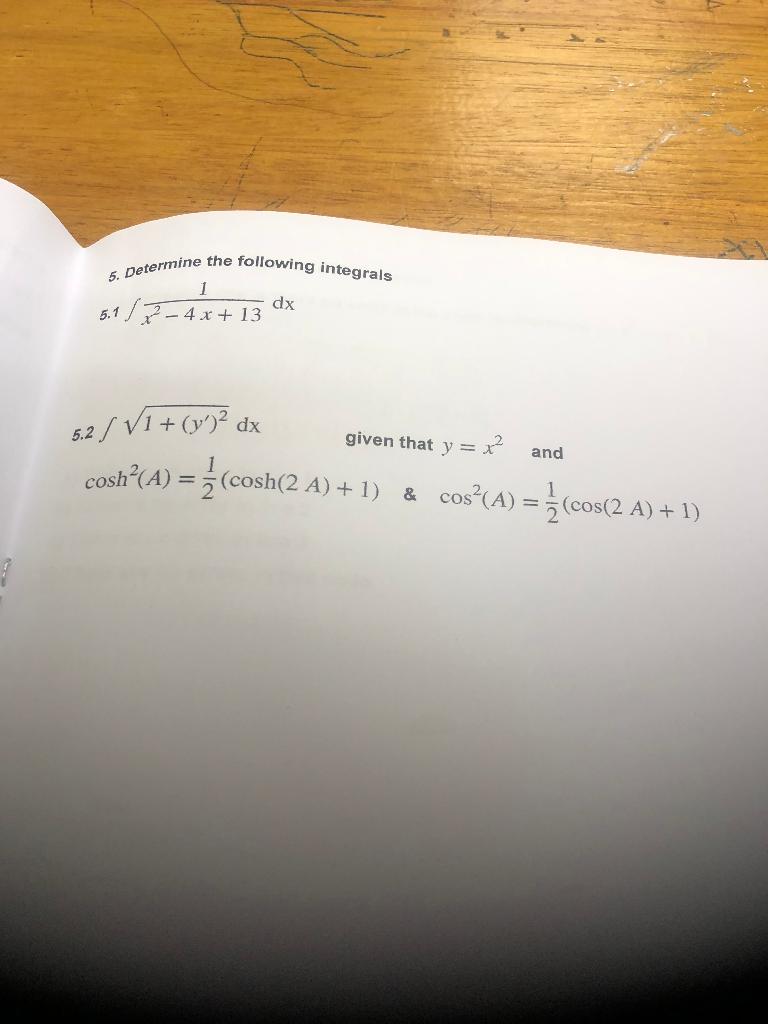 5. Determine the following integrals
5.1 ∫ 1/(x² − 4 x + 13) dx
5.2 ∫ √(1 + (y′)²) dx given that y = x² and
cosh²(A) = 1/2 (cosh(2 A) + 1) & cos²(A) = 1/2 (cos(2 A) + 1)